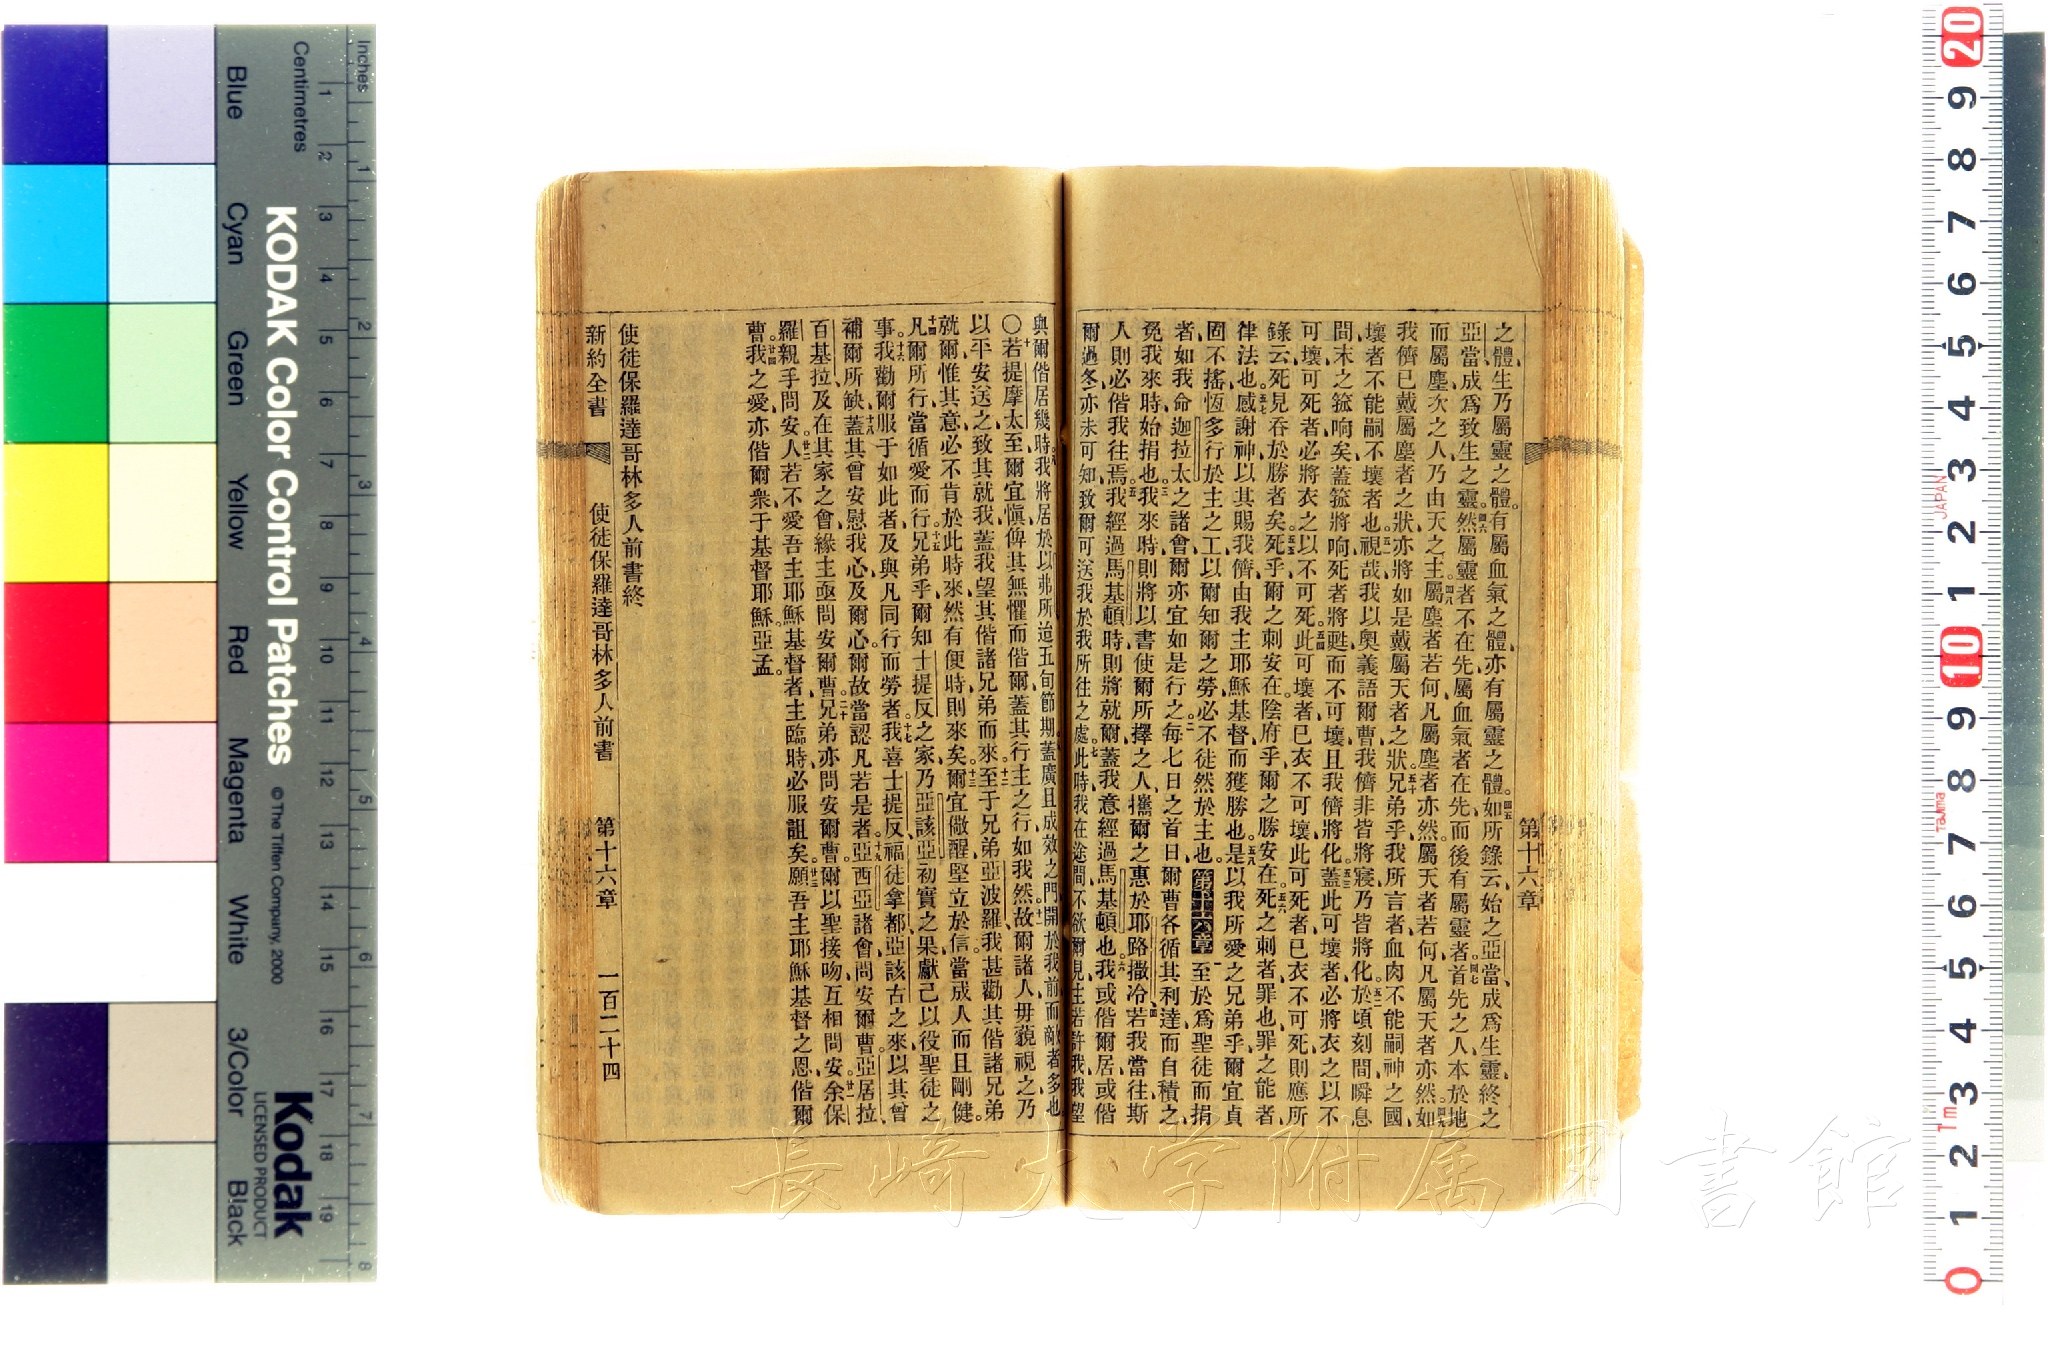 之體、生乃屬靈之體。有屬血氣之體、亦有屬靈之體。四五如所錄云、始之亞當、成爲生靈、終之
亞當、成爲致生之靈。四六然屬靈者不在先、屬血氣者在先、而後有屬靈者。四七首先之人、本於地
而屬塵、次之人、乃由天之主。四八屬塵者若何、凡屬塵者亦然。屬天者若何、凡屬天者亦然。四九如
我儕已戴屬塵者之狀、亦將如是戴屬天者之狀。五十兄弟乎、我所言者、血肉不能嗣神之國、
壞者不能嗣不壞者也。五一視哉、我以奧義語爾曹、我儕非皆將寢、乃皆將化。五二於頃刻間、瞬息
間、末之箛响矣、蓋箛將响、死者將甦、而不可壞、且我儕將化。五三蓋此可壞者、必將衣之以不
可壞、可死者、必將衣之以不可死。五四此可壞者已衣不可壞、此可死者已衣不可死、則應所
錄云、死見吞於勝者矣。五五死乎、爾之刺安在、陰府乎、爾之勝安在。五六死之刺者罪也、罪之能者
律法也。五七感謝神、以其賜我儕由我主耶穌基督而獲勝也。五八是以我所愛之兄弟乎、爾宜貞
固不搖、恆多行於主之工、以爾知爾之勞、必不徒然於主也。第十六章 一至於爲聖徒而捐
者、如我命迦拉太之諸會、爾亦宜如是行之。二每七日之首日、爾曹各循其利達而自積之、
免我來時始捐也。三我來時、則將以書使爾所擇之人、攜爾之惠於耶路撒冷。四若我當往、斯
人則必偕我往焉。五我經過馬基頓時、則將就爾、蓋我意經過馬基頓也。六我或偕爾居、或偕
爾過冬、亦未可知、致爾可送我於我所往之處。七此時我在途間、不欲爾見、主若許我、我望
與爾偕居幾時。八我將居於以弗所、迨五旬節期。九蓋廣且成效之門開於我前、而敵者多也
○十若提摩太至、爾宜愼、俾其無懼而偕爾、蓋其行主之行、如我然。十一故爾諸人毋藐視之、乃
以平安送之、致其就我、蓋我望其偕諸兄弟而來。十二至于兄弟亞波羅、我甚勸其偕諸兄弟
就爾、惟其意必不肯於此時來、然有便時則來矣。十三爾宜儆醒、堅立於信、當成人而且剛健。
十四凡爾所行、當循愛而行。十五兄弟乎、爾知士提反之家、乃亞該亞初實之果、獻己以役聖徒之
事。十六我勸爾服于如此者、及與凡同行而勞者。十七我喜士提反福徒拿都亞該古之來、以其曾
補爾所缺。十八蓋其曾安慰我心、及爾心、爾故當認凡若是者。十九亞西亞諸會問安爾曹、亞居拉、
百基拉、及在其家之會、緣主亟問安爾曹。二十兄弟亦問安爾曹、爾以聖接吻互相問安。廿一余保
羅親手問安。廿二人若不愛吾主耶穌基督者、主臨時必服詛矣。廿三願吾主耶穌基督之恩偕爾
曹。廿四我之愛、亦偕爾衆于基督耶穌、亞孟。
使徒保羅達哥林多人前書終
新約全書 使徒保羅達哥林多人前書 第十六章 一百二十四
第十六章
長崎大学附属図書館
KODAK Color Control Patches © The Tiffen Company, 2000
Kodak
LICENSED PRODUCT
Inches 1 2 3 4 5 6 7 8
Centimetres 1 2 3 4 5 6 7 8 9 10 11 12 13 14 15 16 17 18 19
Blue Cyan Green Yellow Red Magenta White 3/Color Black
20 9 8 7 6 5 4 3 2 1 10 9 8 7 6 5 4 3 2 1 0
JAPAN
Tajima
Tm